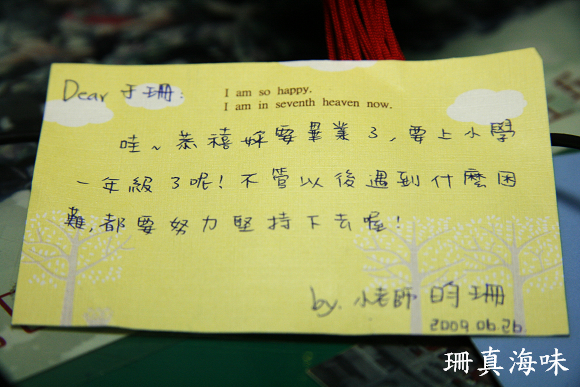 Dear 于珊:
I am so happy.
I am in seventh heaven now.
哇~恭禧妳要畢業了,要上小學
一年級了呢!不管以後遇到什麼困
難,都要努力堅持下去喔!
by. 小老師 昀珊
2009.06.26.
珊真海味